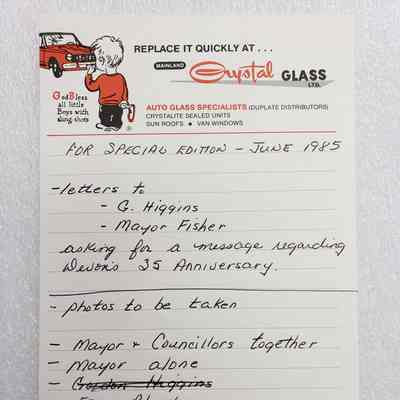 REPLACE IT QUICKLY AT . . .
MAINLAND Crystal GLASS LTD.
GodBless
all little
Boys with
slingshots
AUTO GLASS SPECIALISTS (DUPLATE DISTRIBUTORS)
CRYSTALITE SEALED UNITS
SUN ROOFS • VAN WINDOWS
FOR SPECIAL EDITION - JUNE 1985
- letters to
- G. Higgins
- Mayor Fisher
asking for a message regarding
Devon's 35 Anniversary.
- photos to be taken
- Mayor & Councillors together
- Mayor alone
- Gordon Higgins